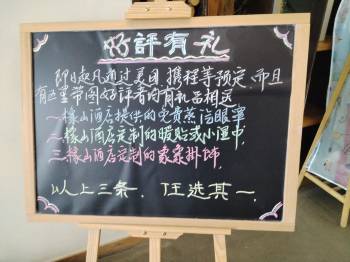 好評有礼
即日起凡通过美团、携程等预定，而且
有这里带图好評者均有礼品相送
一.椽山酒店提供的免费蒸汽眼罩
二.椽山酒店定制的暖贴或小湿巾
三.椽山酒店定制的象象掛饰
以上三条，任选其一.